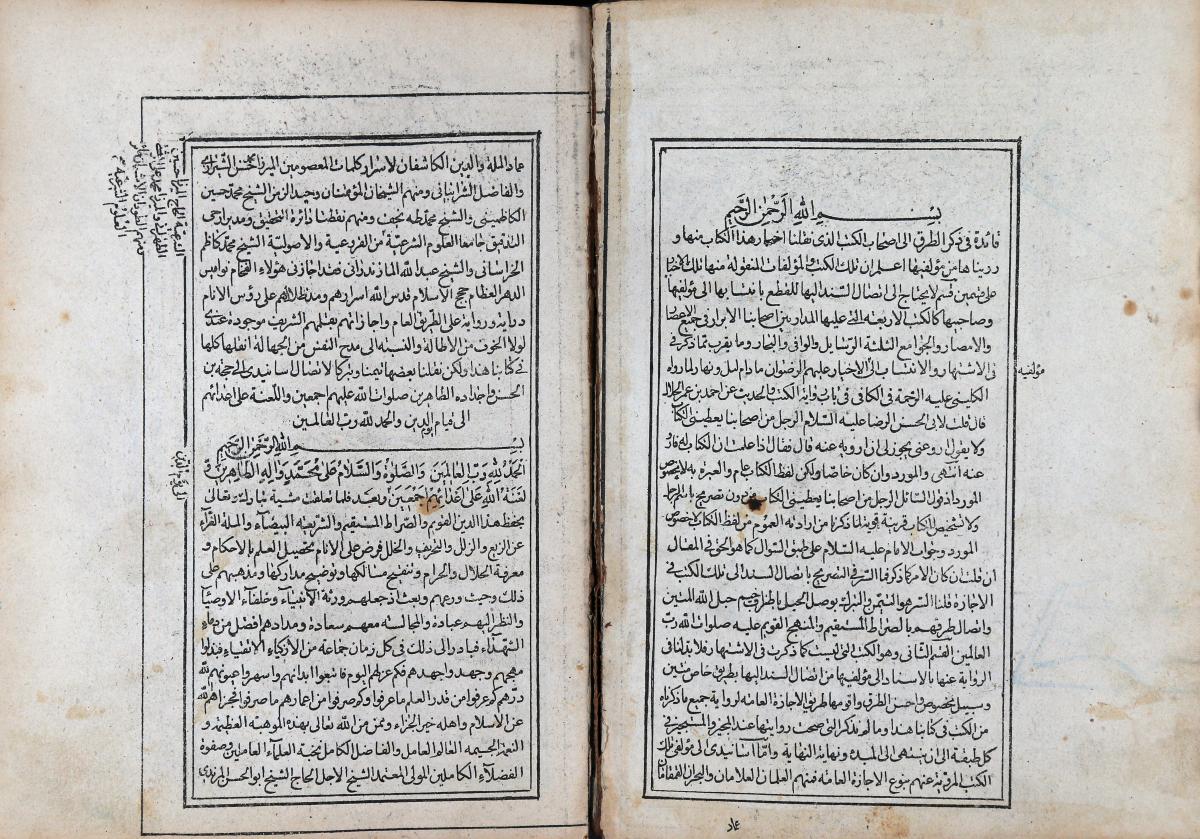 بسم الله الرحمن الرحيم
فائدة في ذكر الطرق الى اصحاب الكتب الذى نقلنا اخبار هذا الكتاب منها و
رويناها من مؤلفيها اعلم ان تلك الكتب المؤلفات المنقوله منها تلك الاخبار
على ضمين قسم لا يحتاج الى اتصال السند اليها للقطع بانتسابها الى مؤلفيها
وصاحبيها كالكتب الاربعة التى عليها المدار بين اصحابنا الابرار في جميع الاعصار
والامصار والجوامع الثلثة الوسايل والوافى والبحار وما يقرب مما ذكر في
فى الاشتهار والانتساب الى الاخيار عليهم الرضوان ما دام ليل ونهار لما رواه
مؤلفيه
الكلينى عليه الرحمة في الكافى في باب رواية الكتب والحديث عن احمد بن عمر الحلال
قال قلت لابى الحسن الرضا عليه السلام الرجل من اصحابنا يعطينى الكتاب
ولا يقول اروه عنى يجوز لى ان ارويه عنه قال فقال اذا علمت ان الكتاب له فاروه
عنه انتهى والمورد وان كان خاصا ولكن لفظ الكتاب عام والعبرة به لا بخصوص
المورد اذ قول السائل الرجل من اصحابنا يعطينى الكتاب من دون تصريح باسم الرجل
ولا بتشخيص الكتاب قرينة قوية لما ذكرنا من ارادته العموم من لفظ الكتاب لا خصوص
المورد وجواب الامام عليه السلام على طبق السوال كما هو الحق في المقال
ان قلت ان كان الامر كما ذكر فما السر في التصريح باتصال السند الى تلك الكتب في
الاجازة قلنا السر هو التيمن والتبرك بوصل الحبل باطراف حبل الله المتين
واتصال طرقهم بالصراط المستقيم والمنهج القويم عليه صلوات الله رب
العالمين القسم الثانى وهو الكتب التى ليست كما ذكرت في الاشتهار فلا بد لنا في
الرواية عنها بالاسناد الى مؤلفيها من اتصال السند اليها بطريق خاص متين
وسبيل مخصوص احسن الطرق واقومها طريق الاجازة العامه لرواية جميع ما ذكرناه
من الكتب في كتابنا هذا وما لم نذكر التى صحت روايتها عند المجيز والمستجيز في
كل طبقة الى ان ينتهى الى المبدء ونهاية النهاية واما اسانيدى الى مؤلفى تلك
الكتب المروية عنهم بنوع الاجازة العامه فمنهم العلمان العلامان والبحران القمقامان
عماد
عماد الملة والدين الكاشفان لاسرار كلمات المعصومين الميرزا محمد حسن الشيرازى
والفاضل الشرابيانى ومنهم الشيخان المؤتمنان وحيد الزمن الشيخ محمد حسين
الكاظمينى والشيخ محمد طه نجف ومنهم نقطتا دائرة التحقيق ومديرا رحى
التدقيق جامعا العلوم الشرعية من الفروعية والاصولية الشيخ محمد كاظم
الخراسانى والشيخ عبد الله المازندرانى فقد اجازنى هؤلاء الفخام نواميس
الدهر العظام حجج الاسلام قدس الله اسرارهم ومد ظلالهم على رؤس الانام
دراية ورواية على الطريق العام واجازاتهم بقلمهم الشريف موجودة عندى
لولا الخوف من الاطالة والنسبة الى مدح النفس من الجهالة انقلها كلها
في كتابنا هذا ولكن نقلنا بعضها تيمنا وتبركا لاتصال اسانيدى الى حجة بن
الحسن واجداده الطاهرين صلوات الله عليهم اجمعين واللعنة على اعدائهم
الى قيام يوم الدين والحمد لله رب العالمين
بسم الله الرحمن الرحيم
الحمد لله رب العالمين والصلوة والسلام على محمد واله الطاهرين و
لعنة الله على اعدائهم اجمعين وبعد فلما تعلقت مشية تبارك وتعالى
الى يوم الدين
بحفظ هذا الدين القويم والصراط المستقيم والشريعة البيضاء والملة الغراء
عن الزيغ والزلل والتحريف والخلل فرض على الانام تحصيل العلم بالاحكام و
معرفة الحلال والحرام وتنقيح مسالكها وتوضيح مداركها ومدحهم على
ذلك وحيث ورعهم وبعث اذ جعلهم ورثة الانبياء وخلفاء الاوصياء
والنظر اليهم عبادة والمجالسة معهم سعادة ومدادهم افضل من دماء
الشهداء فبادر الى ذلك في كل زمان جماعة من الازكياء الاتقياء فبذلوا
مهجهم وجهدوا جهدهم فكم عزهم اليوم فاتعبوا ابدانهم واسهروا عيونهم لله
درهم كم عرفوا من قدر العلم ما عرفوا وكم صرفوا من اعمارهم ما صرفوا فجزاهم الله
عن الاسلام واهله خير الجزاء وممن من الله تعالى بهذه الموهبة العظيمة و
النعمة الجسيمة العالم العامل والفاضل الكامل نخبة العلماء العاملين وصفوة
الفضلاء الكاملين المولى المعتمد الشيخ الاجل الحاج الشيخ ابو الحسن المرندى
ومنهم الطودان الاشمان
العلوم الشرعية